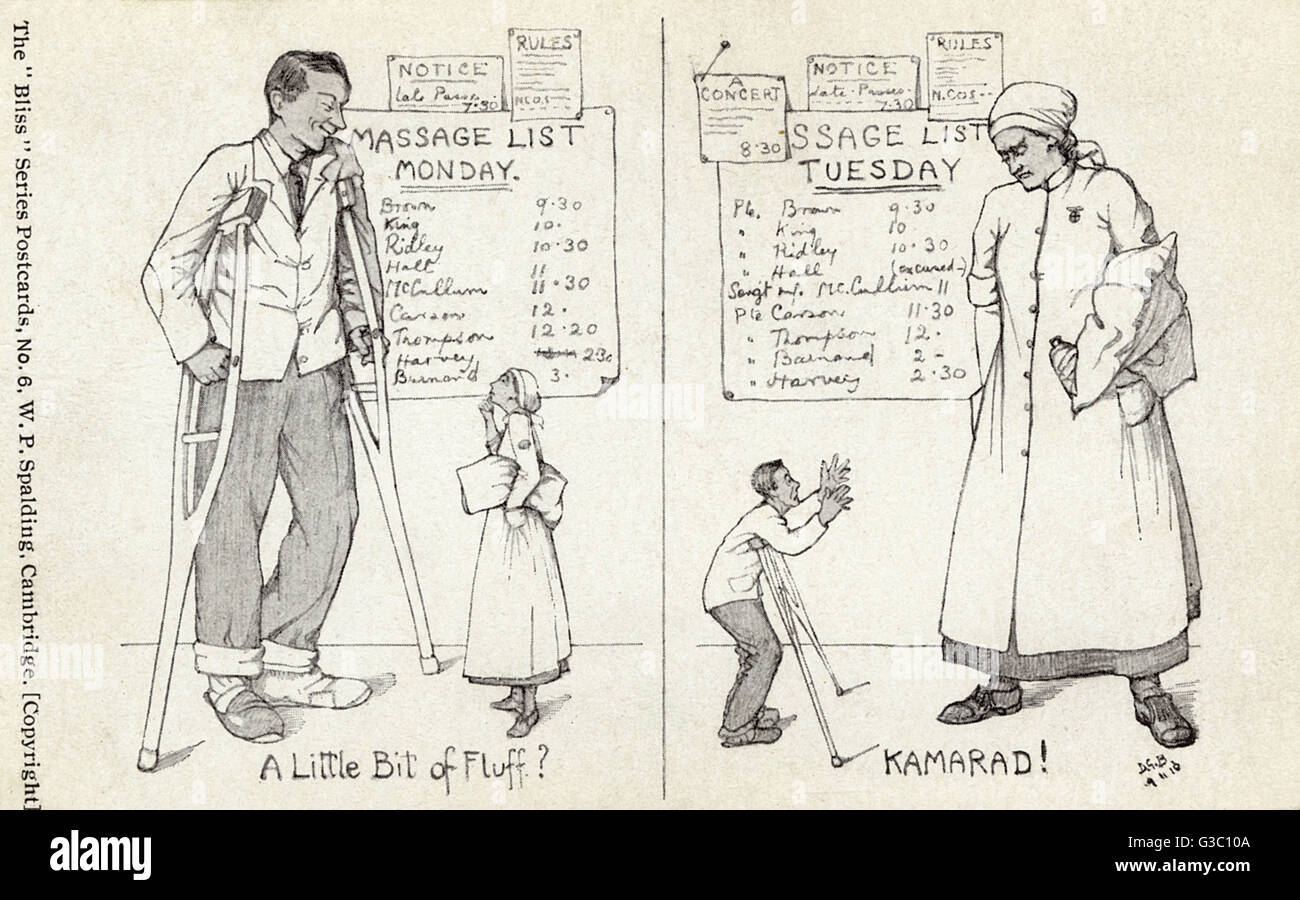 The "Bliss" Series Postcards, No. 6. W. P. Spalding, Cambridge. [Copyright]
NOTICE
Late Passes
7.30
RULES
N.C.O.S
MASSAGE LIST
MONDAY.
Brown 9.30
King 10.
Ridley 10.30
Hall 11
McCullum 11.30
Carson 12.
Thompson 12.20
Harvey 2.30
Burnand 3.
A Little Bit of Fluff?
A
CONCERT
8.30
NOTICE
Late Passes
7.30
RULES
N.COS
SSAGE LIST
TUESDAY
Pte. Brown 9.30
" King 10
" Ridley 10.30
" Hall (excused-)
Sergt McCullum 11
Pte Carson 11.30
" Thompson 12.
" Barnand 2 -
" Harvey 2.30
KAMARAD!
D.G.B
9 11 16
alamy
alamy
Image ID: G3C10A
www.alamy.com